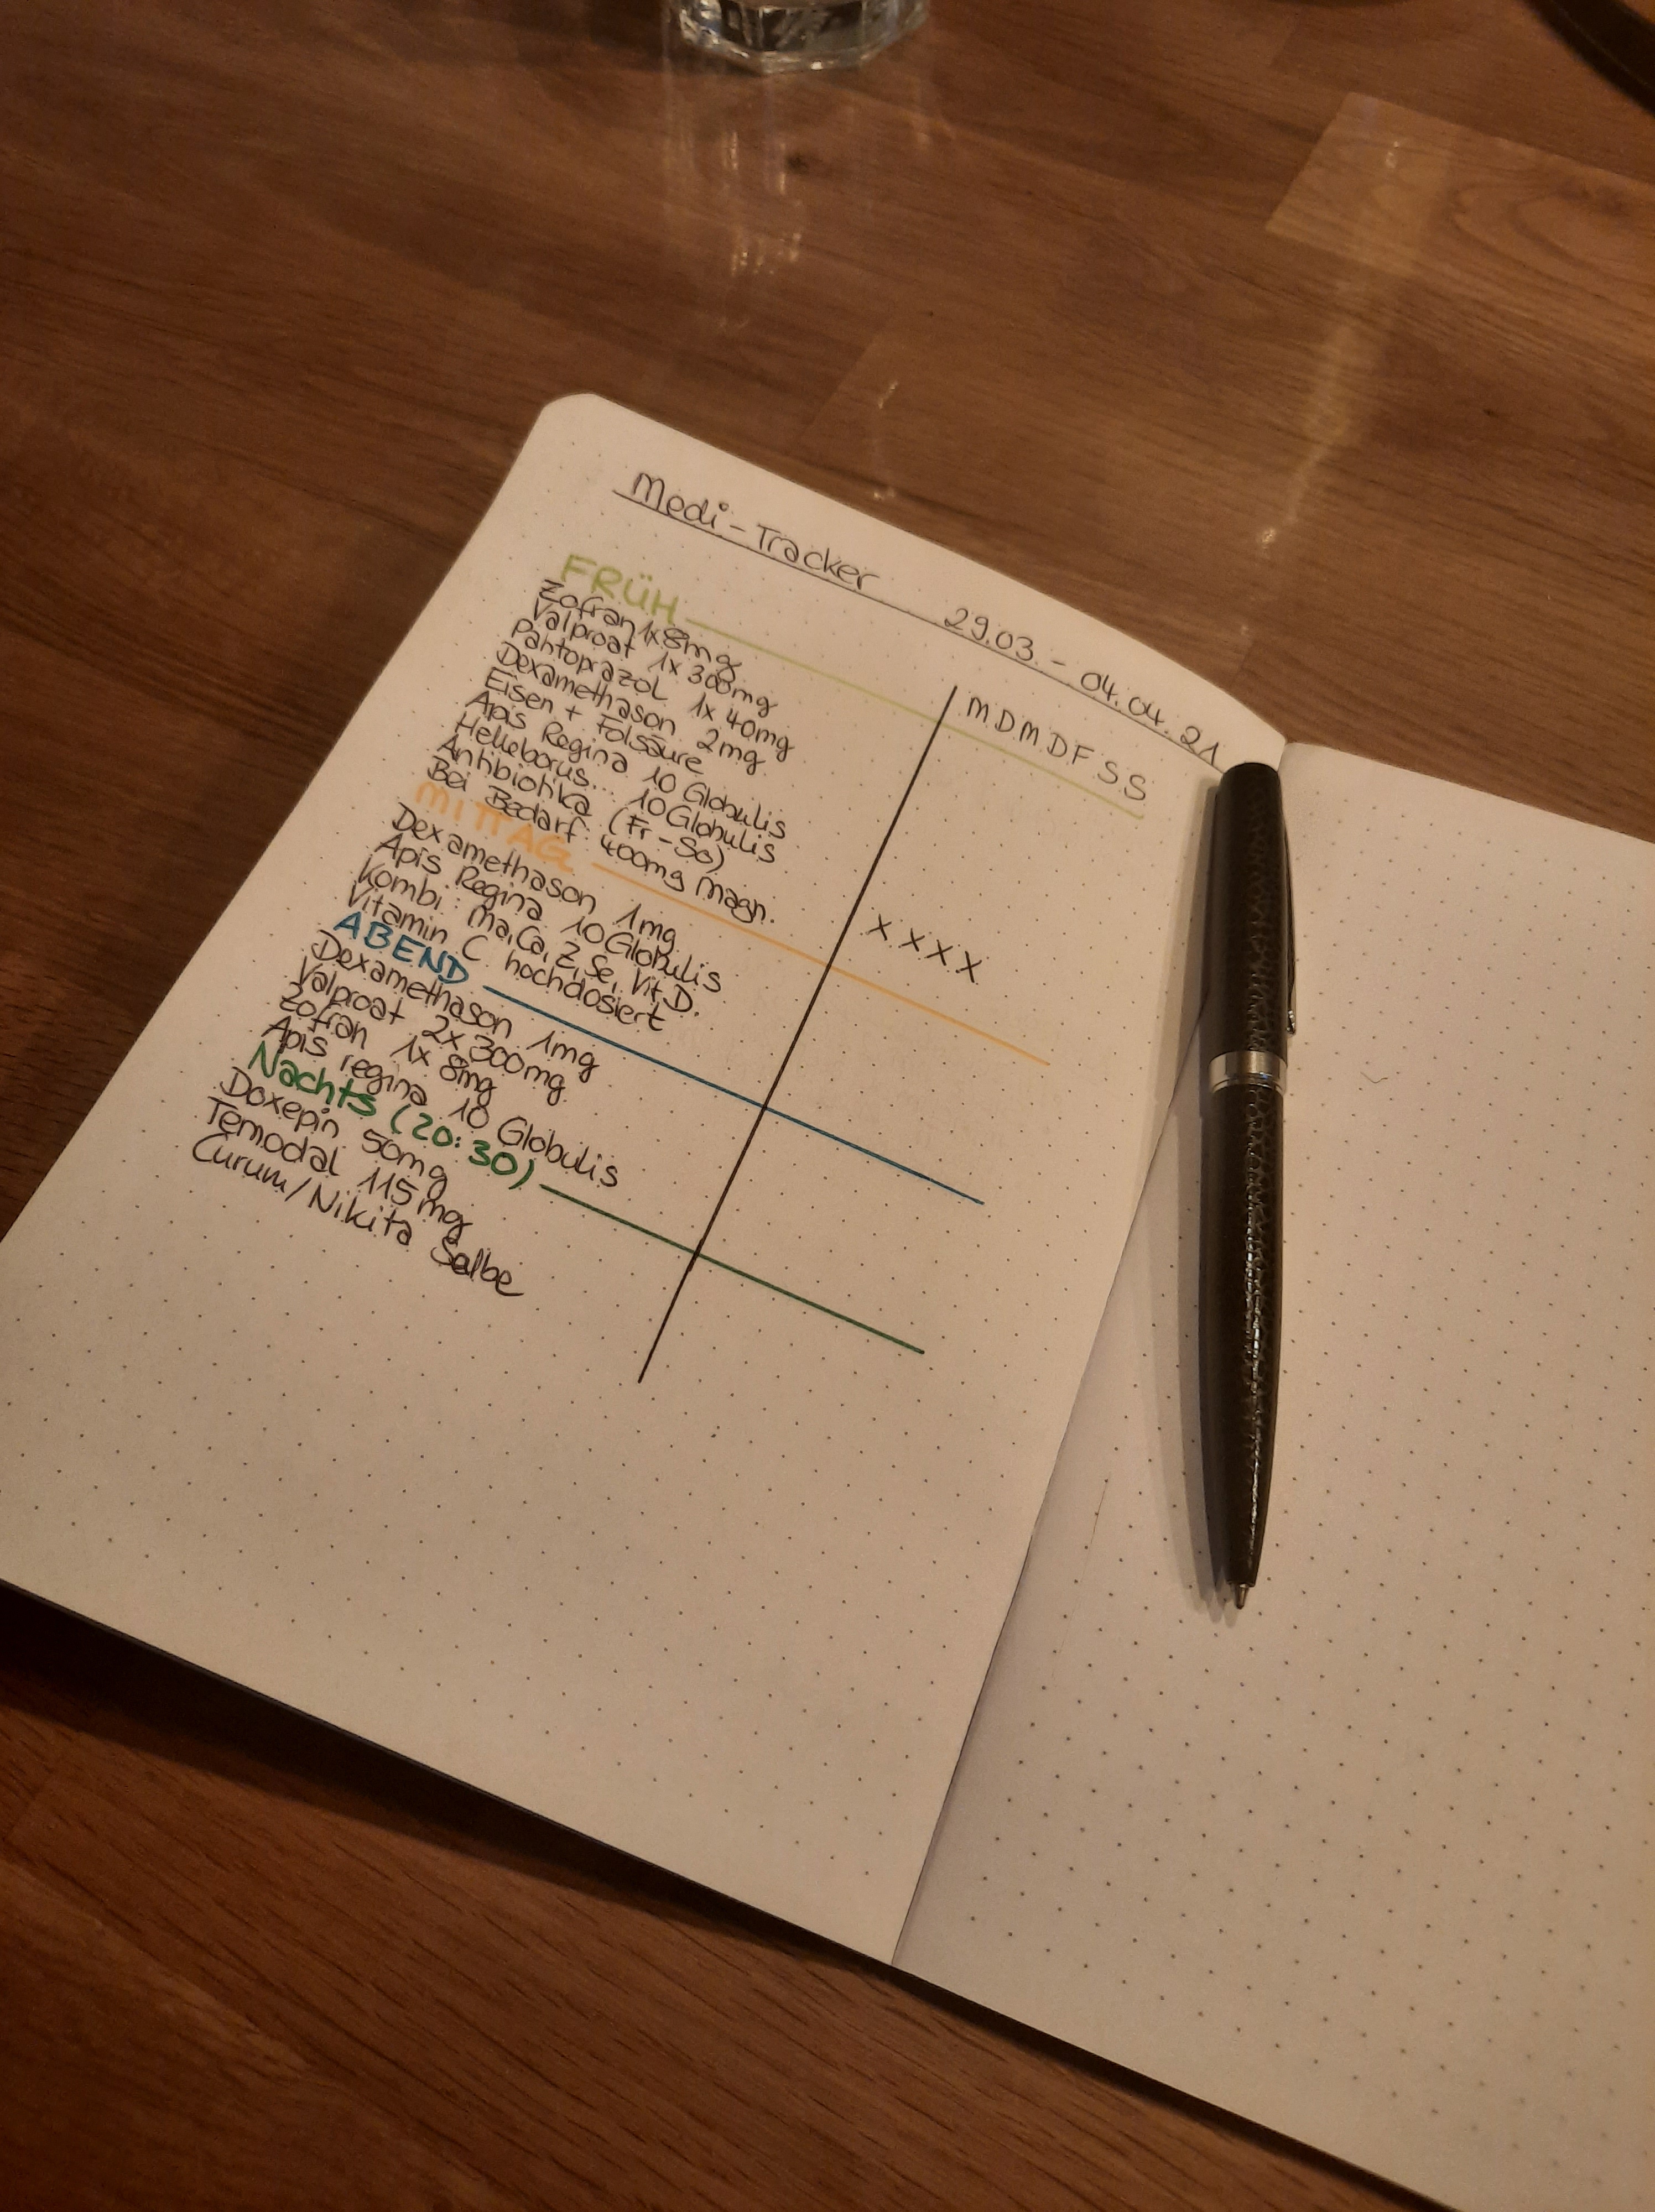 Medi-Tracker 29.03. - 04.04.21
FRÜH M D M D F S S
Zofran 1x 8mg
Valproat 1x 300mg
Pantoprazol 1x 40mg
Dexamethason 2mg
Eisen + Folsäure
Apis Regina 10 Globulis
Helleborus... 10 Globulis
Antibiotika (Fr-So) X X X X
Bei Bedarf: 400mg Magn.
MITTAG
Dexamethason 1mg
Apis Regina 10 Globulis
Kombi: Ma, Ca, Z, Se, Vit D.
Vitamin C hochdosiert
ABEND
Dexamethason 1mg
Valproat 2x 300mg
Zofran 1x 8mg
Apis regina 10 Globulis
Nachts (20:30)
Doxepin 50mg
Temodal 115mg
Curum/Nikita Salbe